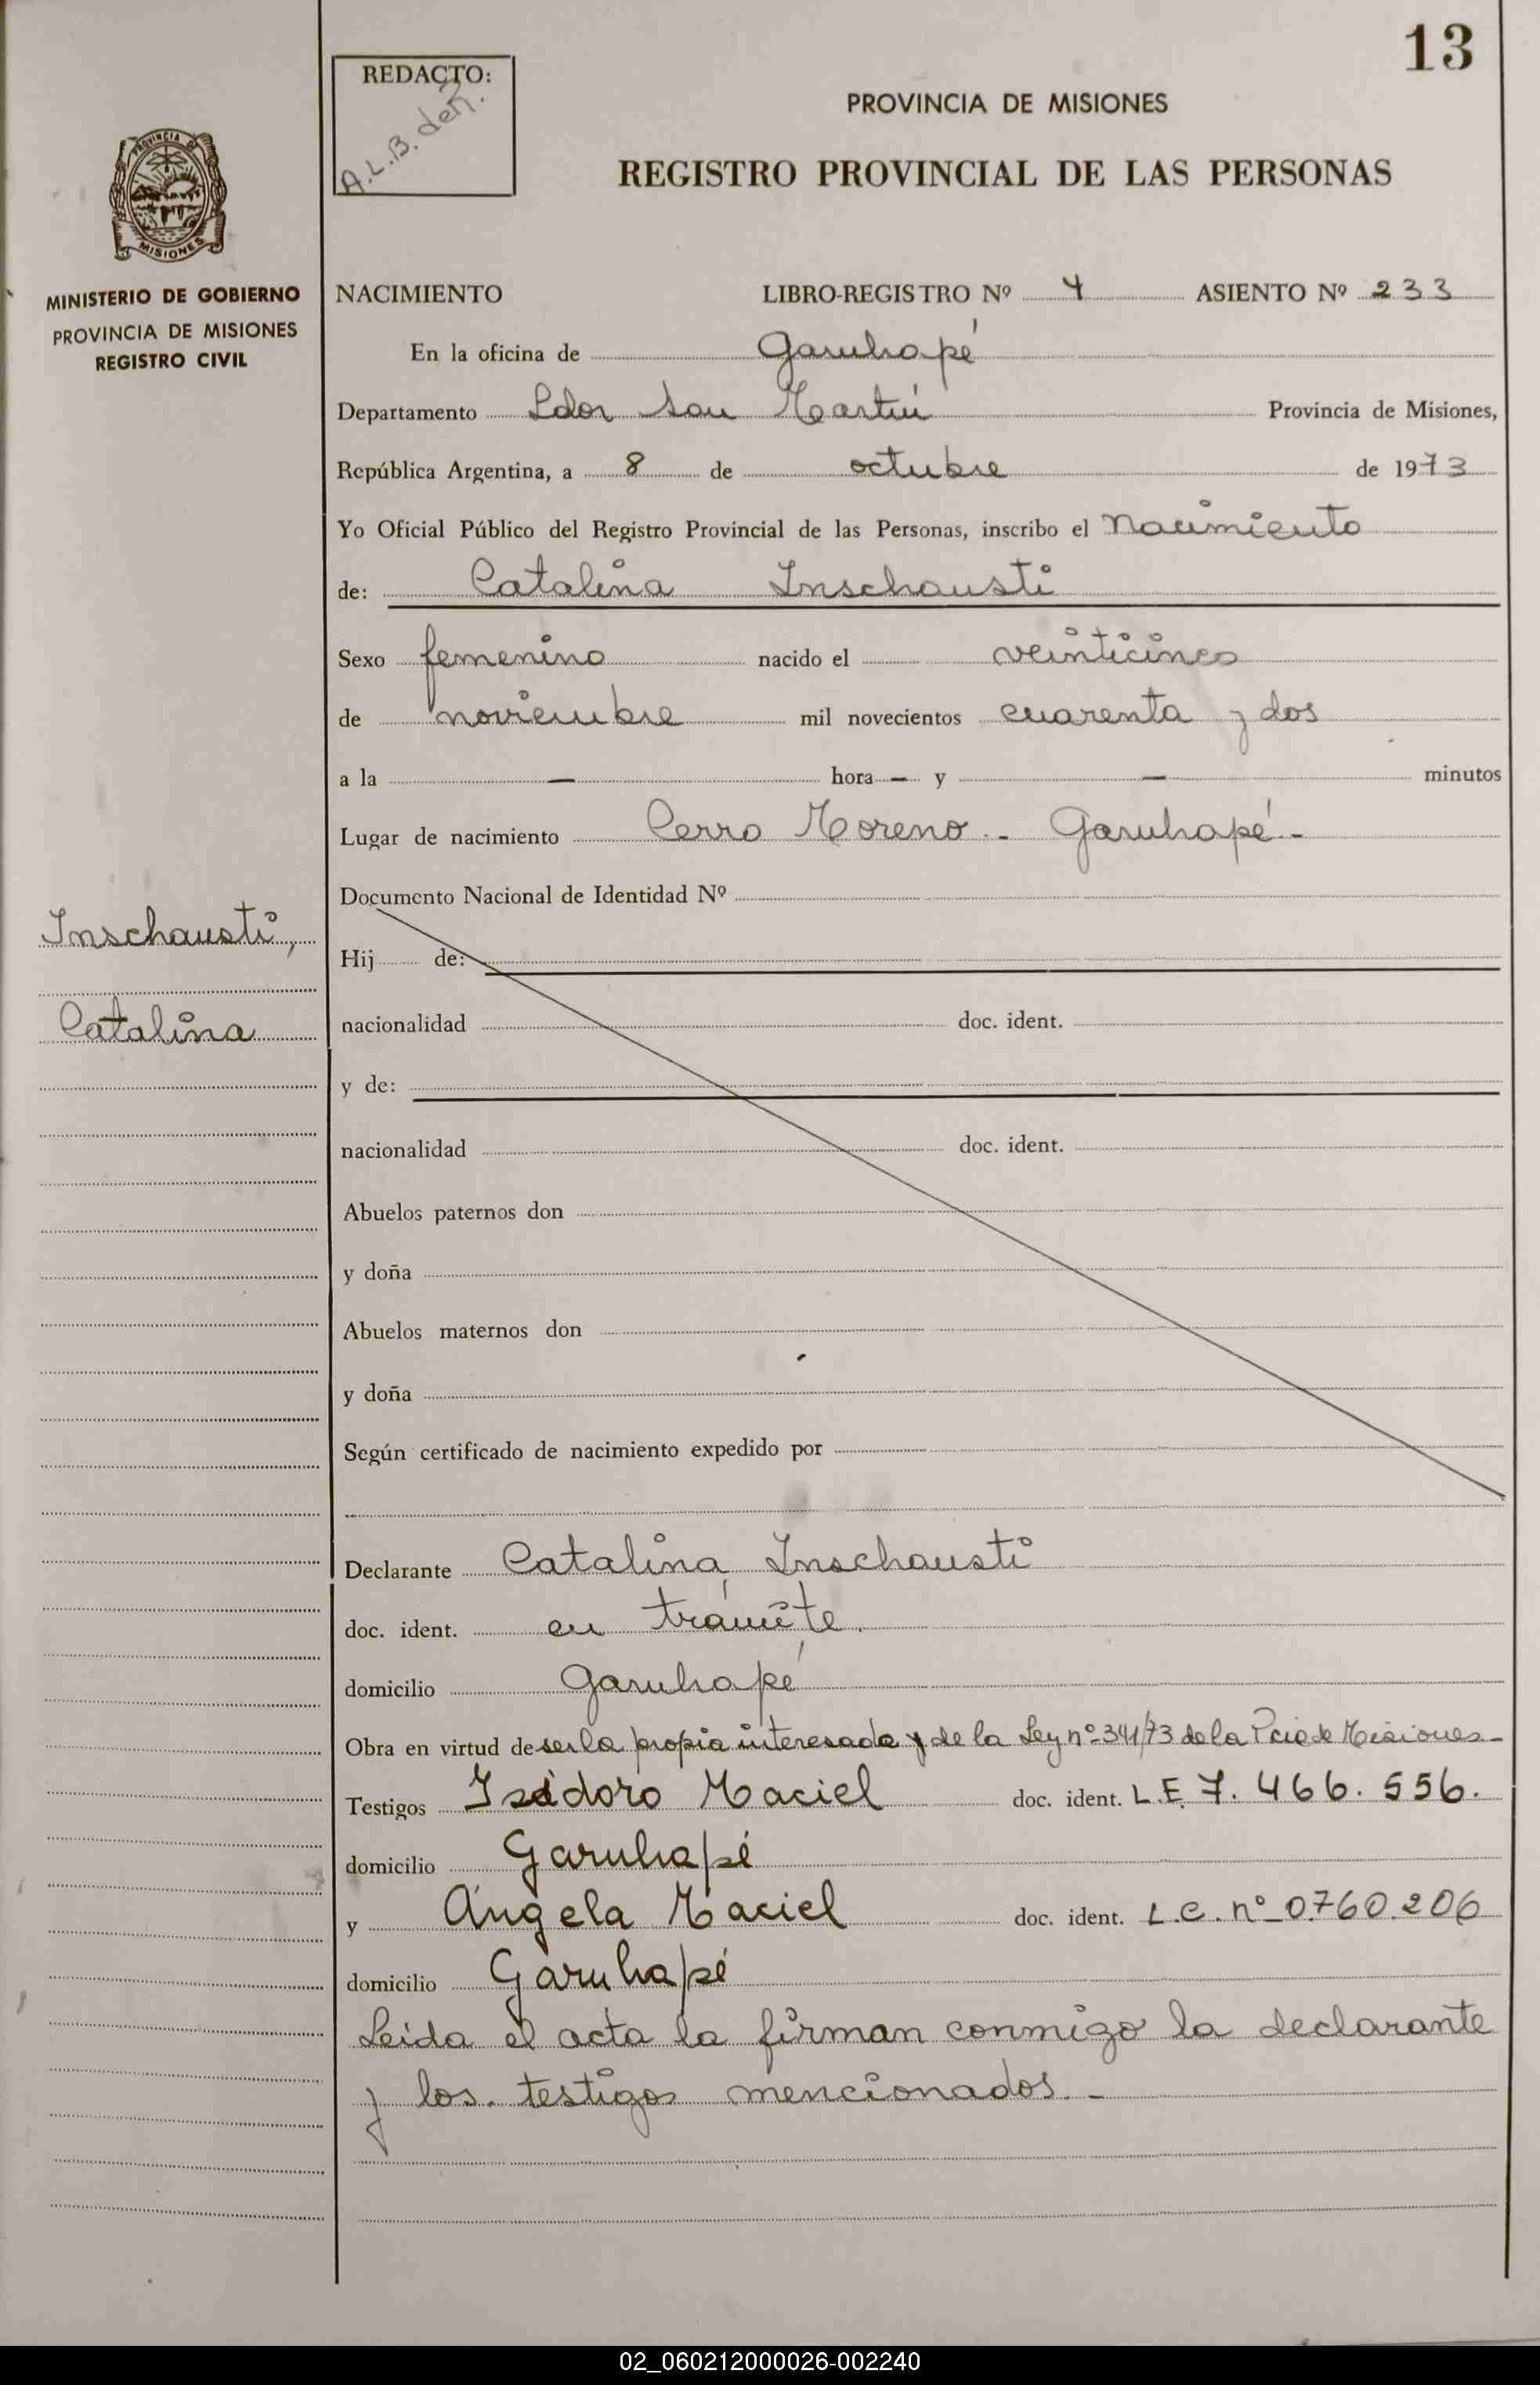 13
REDACTO:
A.L.B. deR.
PROVINCIA DE MISIONES
REGISTRO PROVINCIAL DE LAS PERSONAS
PROVINCIA DE
MISIONES
MINISTERIO DE GOBIERNO
PROVINCIA DE MISIONES
REGISTRO CIVIL
NACIMIENTO LIBRO-REGISTRO Nº 4 ASIENTO Nº 233
En la oficina de Garuhapé
Departamento Ldor San Martín Provincia de Misiones,
República Argentina, a 8 de octubre de 1973
Yo Oficial Público del Registro Provincial de las Personas, inscribo el Nacimiento
de: Catalina Inschausti
Sexo femenino nacido el veinticinco
de noviembre mil novecientos cuarenta y dos
a la — hora — y — minutos
Lugar de nacimiento Cerro Moreno - Garuhapé -
Documento Nacional de Identidad Nº
Inschausti,
Catalina
Hij de:
nacionalidad doc. ident.
y de:
nacionalidad doc. ident.
Abuelos paternos don
y doña
Abuelos maternos don
y doña
Según certificado de nacimiento expedido por
Declarante Catalina Inschausti
doc. ident. en trámite.
domicilio Garuhapé
Obra en virtud de ser la propia interesada y de la Ley nº 341/73 de la Pcia de Misiones -
Testigos Isidoro Maciel doc. ident. L.E. 7.466.556.
domicilio Garuhapé
y Angela Maciel doc. ident. L.C. nº 0.760.206
domicilio Garuhapé
Leída el acta la firman conmigo la declarante
y los testigos mencionados. -
02_060212000026-002240